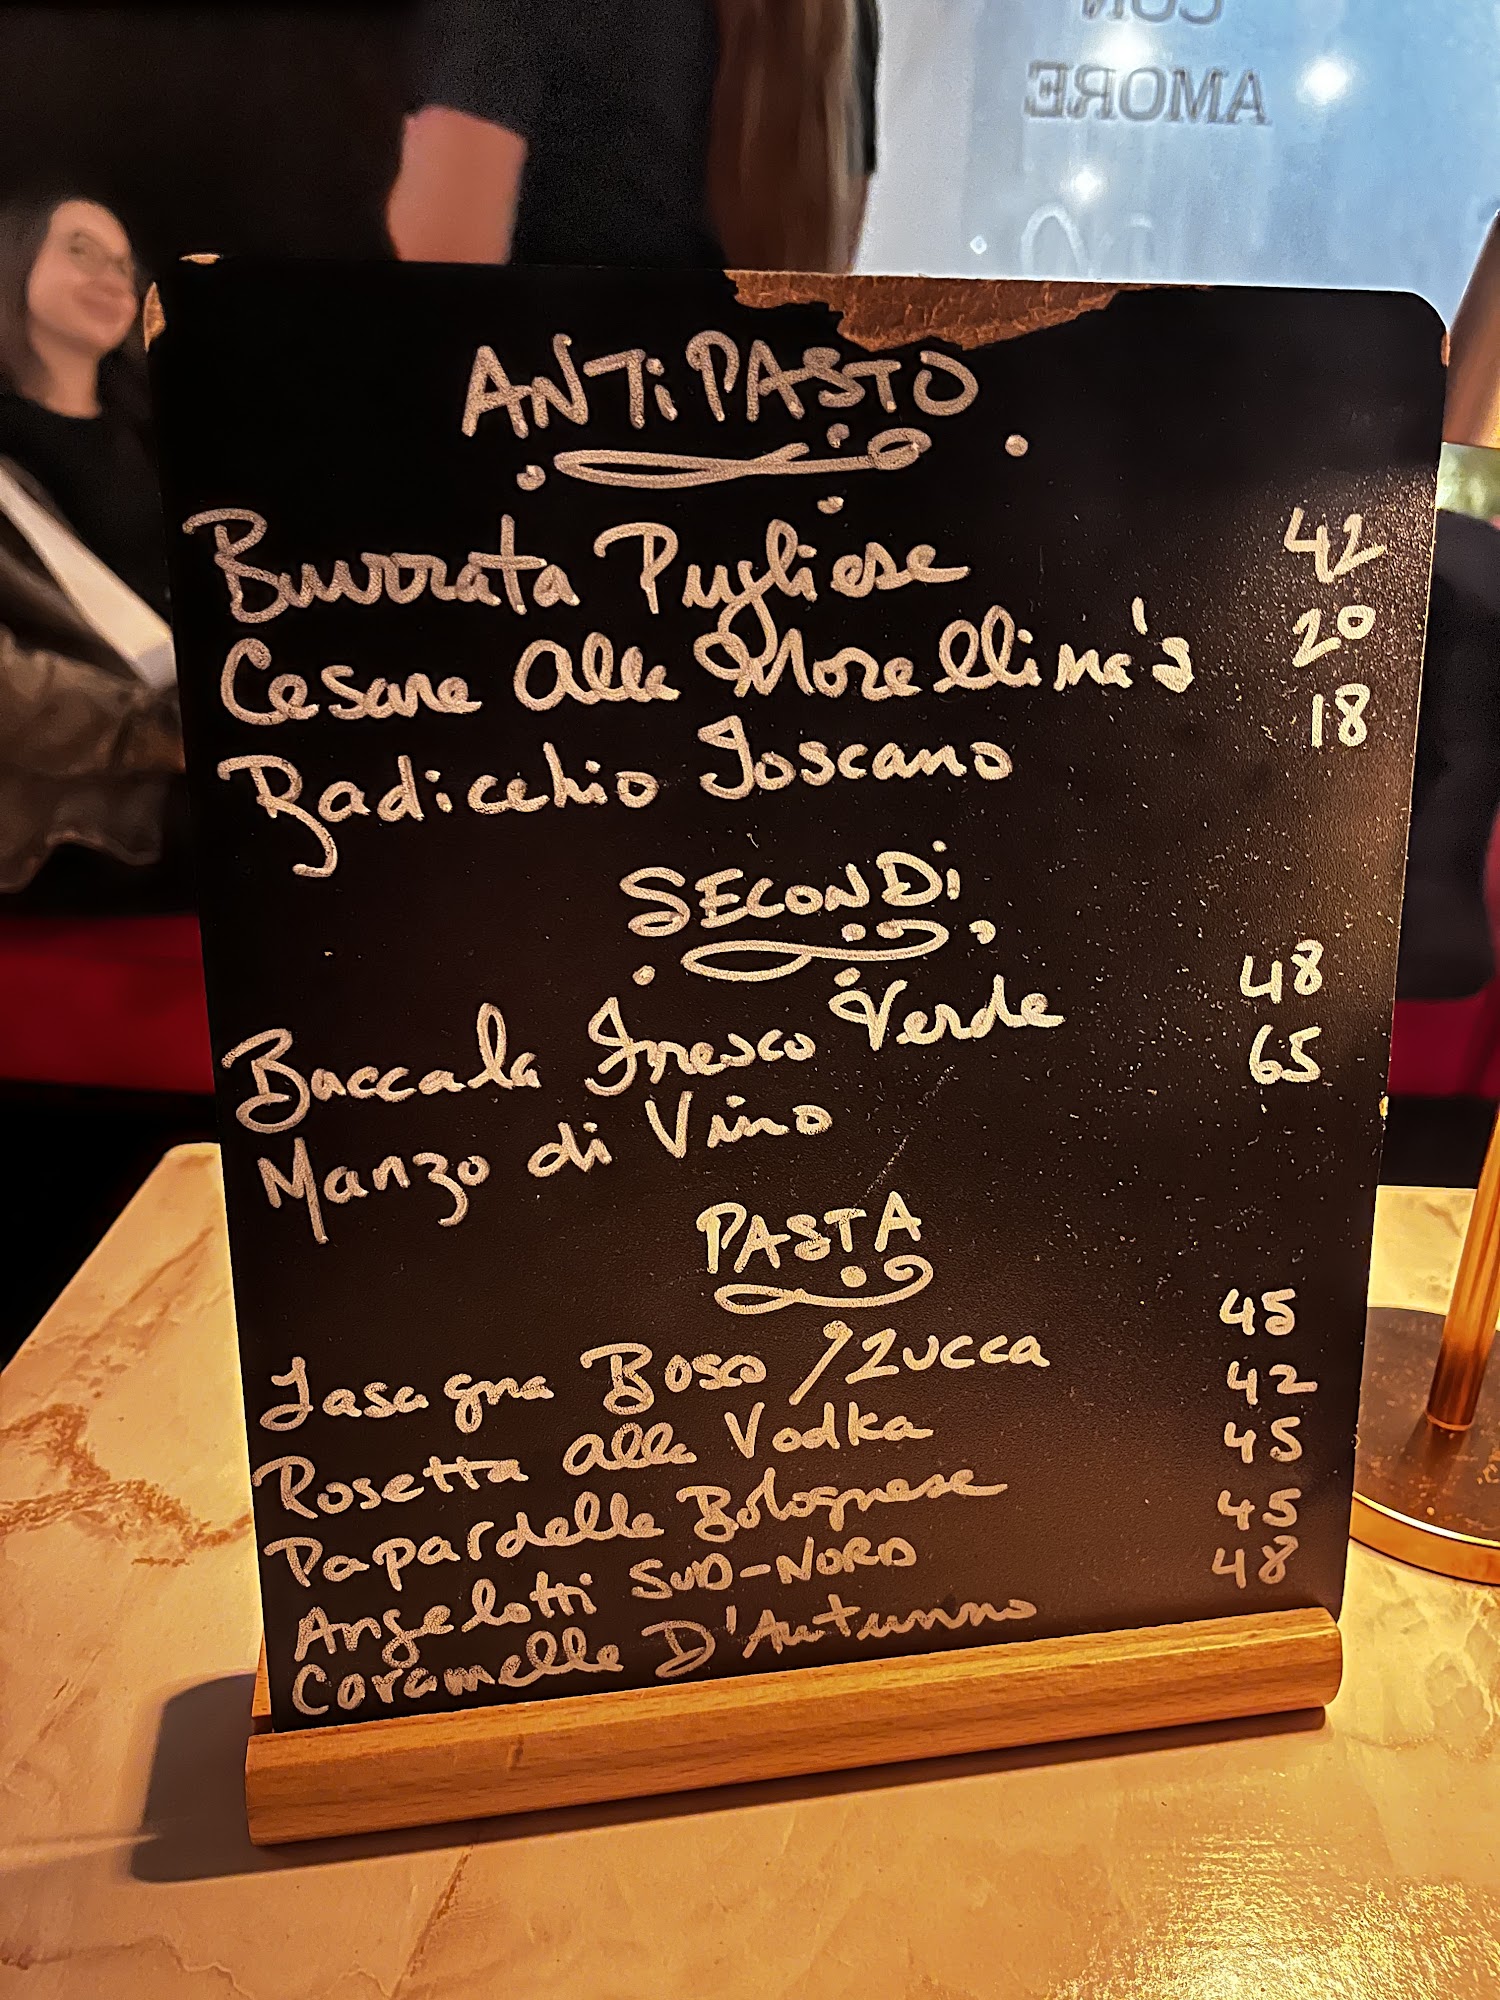 CON
AMORE
ANTiPASTO
Burrata Pugliese 42
Cesare alla Morellina's 20
Radicchio Toscano 18
SECONDi
Baccala Fresco Verde 48
Manzo di Vino 65
PASTA
Lasagna Boso / Zucca 45
Rosetta alla Vodka 42
Papardelle Bolognese 45
Angelotti SUD-NORD 45
Caramelle D'Autunno 48